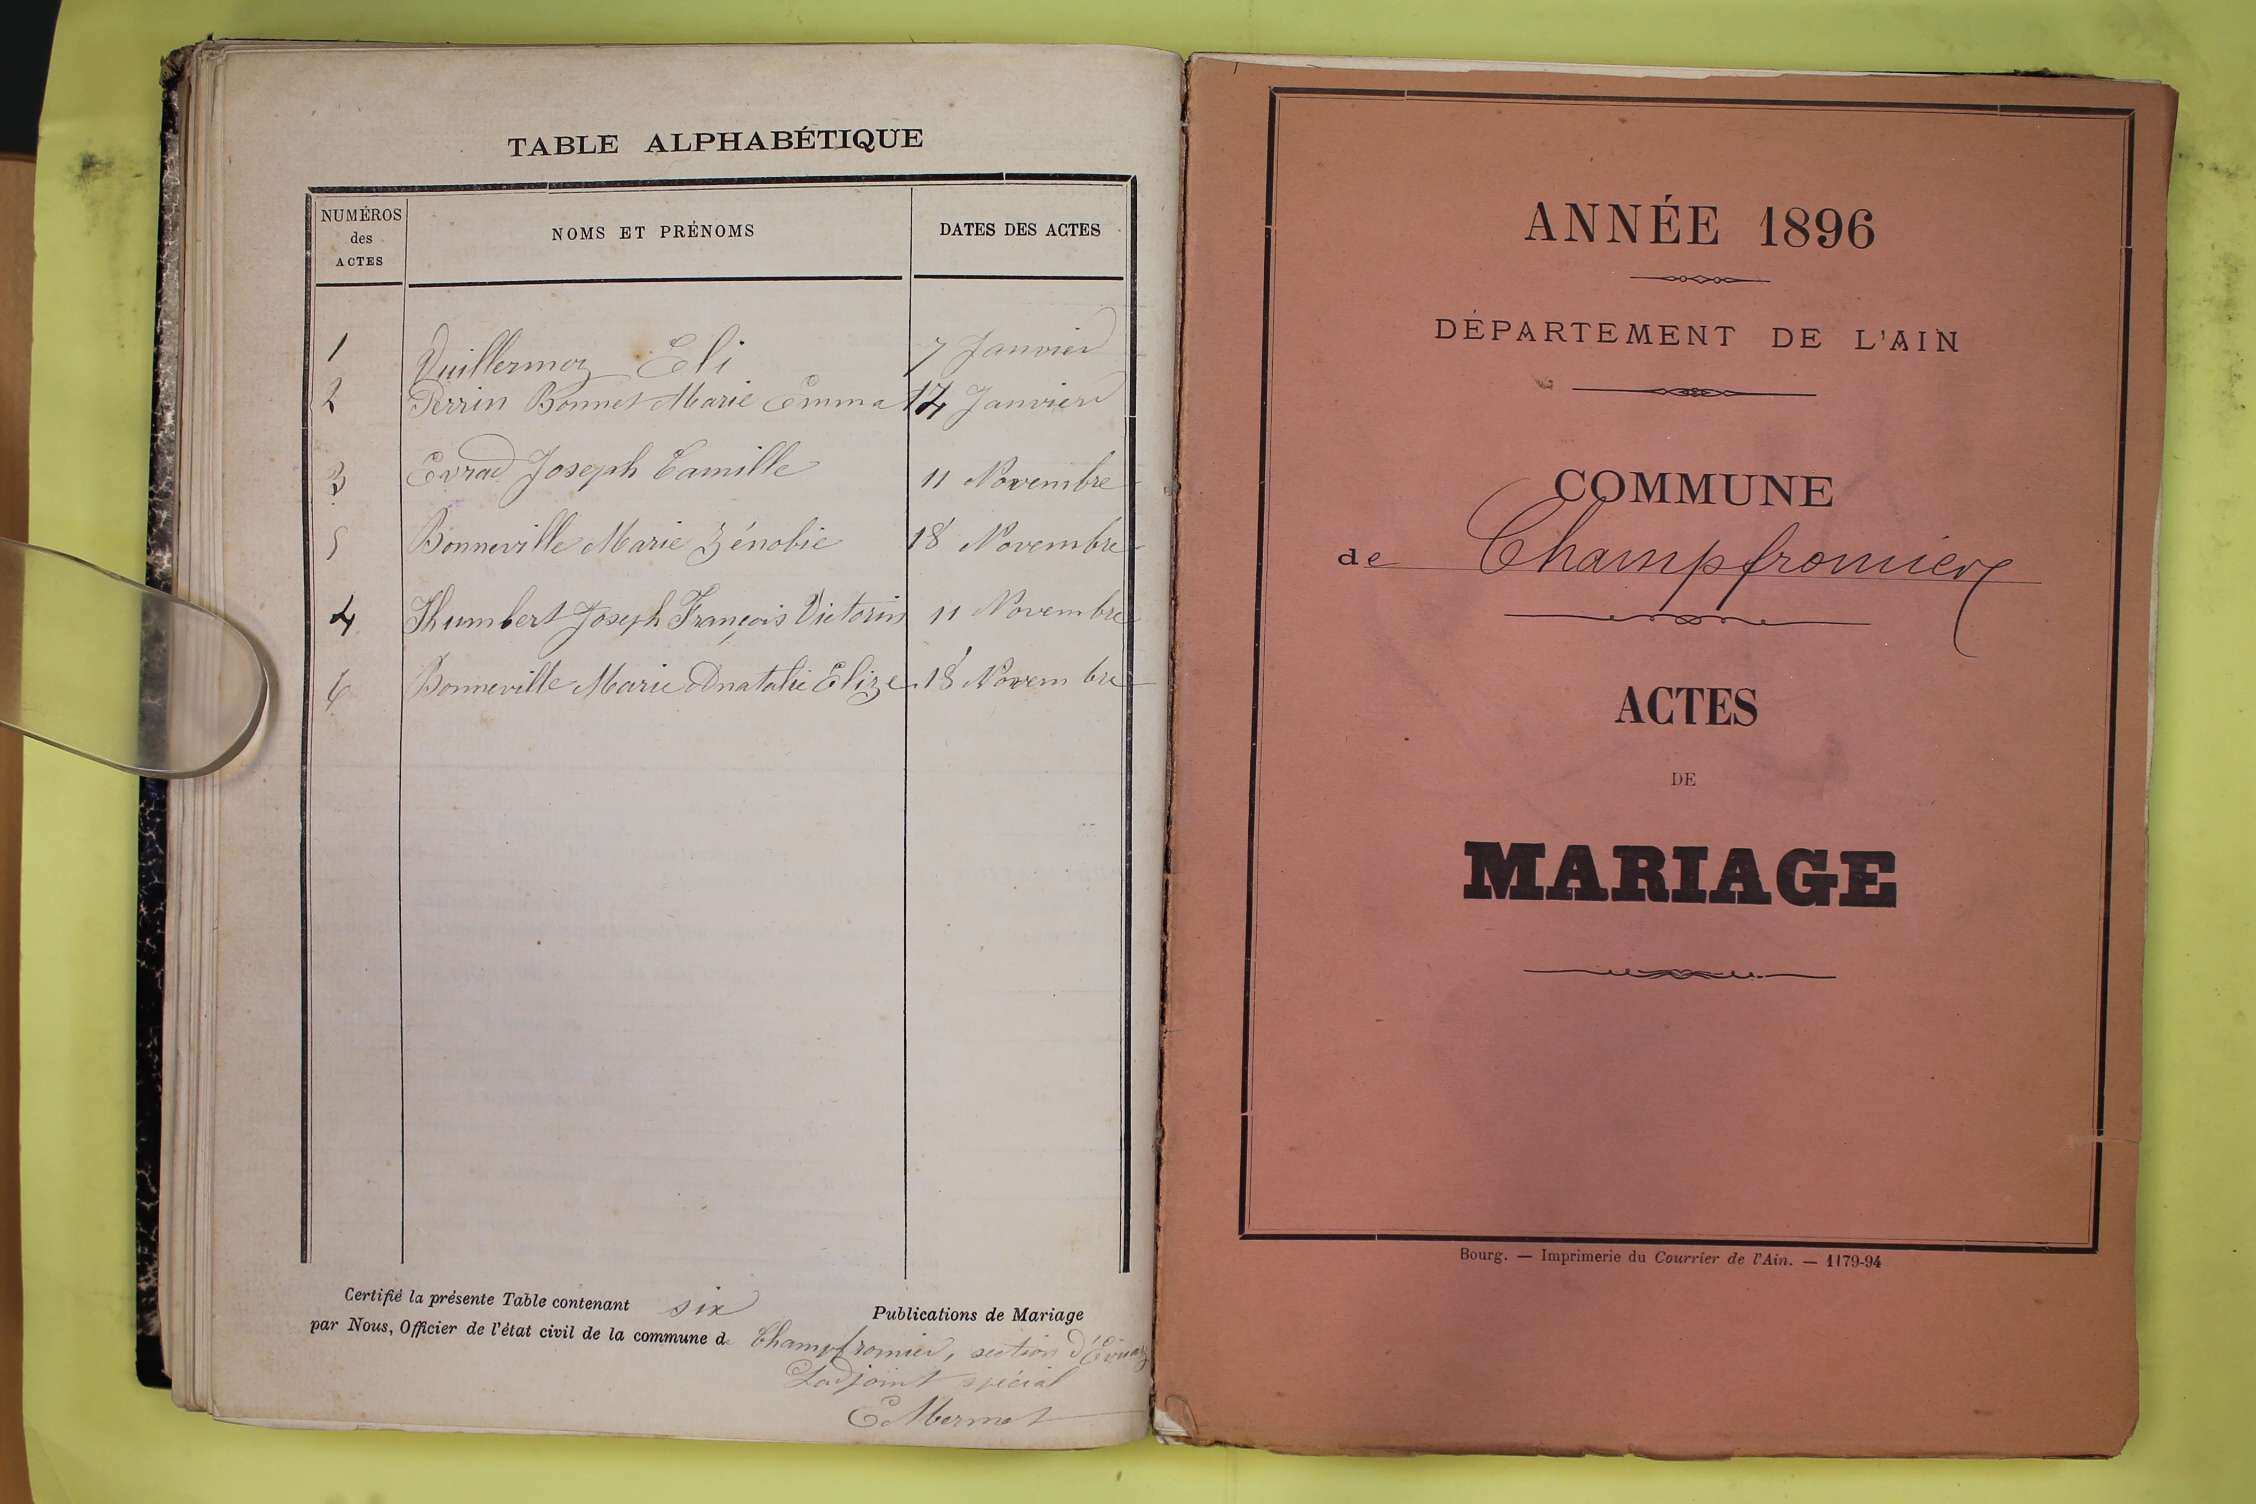 TABLE ALPHABÉTIQUE
NUMÉROS des ACTES NOMS ET PRÉNOMS DATES DES ACTES
1 Vuillermoz Eli 7 Janvier
2 Perrin Bonnet Marie Emma 14 Janvier
3 Evrad Joseph Camille 11 Novembre
5 Bonneville Marie Zénobie 18 Novembre
4 Humbert Joseph François Victorin 11 Novembre
6 Bonneville Marie Anatalie Elize 18 Novembre
Certifié la présente Table contenant six Publications de Mariage
par Nous, Officier de l'état civil de la commune de Champfromier, section d'Évuaz
L'adjoint spécial
E Mermet
ANNÉE 1896
DÉPARTEMENT DE L'AIN
COMMUNE
de Champfromier
ACTES
DE
MARIAGE
Bourg. — Imprimerie du Courrier de l'Ain. — 1179-94